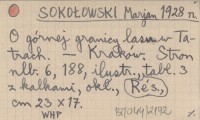 SOKOŁOWSKI Marjan 1928 r.
O górnej granicy lasu w Ta-
trach. Kraków. Stron
nlb. 6, 188, ilustr., tabl. 3
z kalkami, okł., Rés.,
cm 23 × 17.
WHP